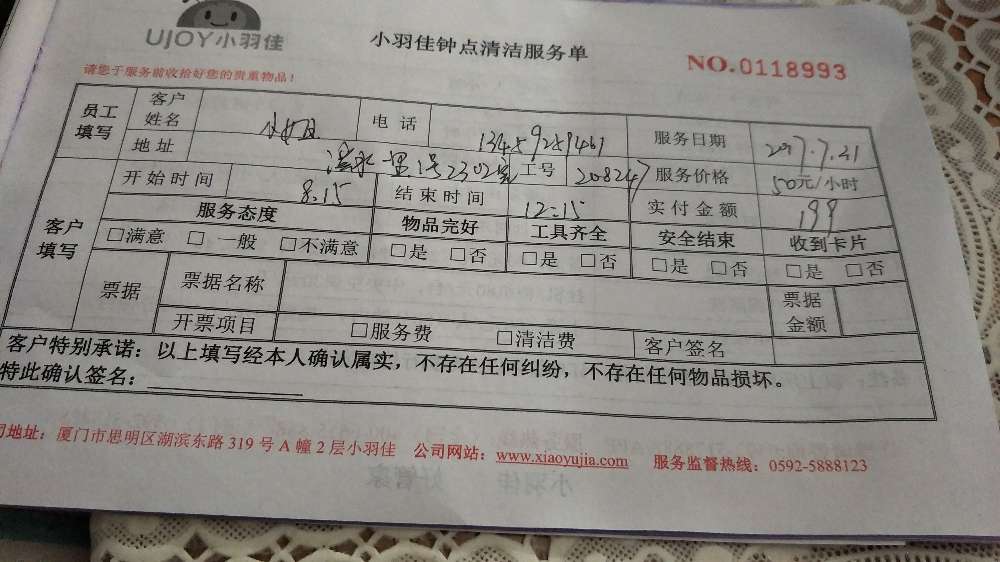 UJOY小羽佳
小羽佳钟点清洁服务单
NO.0118993
请您于服务前收拾好您的贵重物品！
员工填写 客户姓名 电话 13459259461 服务日期 2017.7.21
地址 1号2302室 工号 208247 服务价格 50元/小时
客户填写 开始时间 8.15 结束时间 12.15 实付金额 199
服务态度 物品完好 工具齐全 安全结束 收到卡片
□满意 □一般 □不满意 □是 □否 □是 □否 □是 □否 □是 □否
票据 票据名称 票据金额
开票项目 □服务费 □清洁费 客户签名
客户特别承诺：以上填写经本人确认属实，不存在任何纠纷，不存在任何物品损坏。
特此确认签名：
司地址：厦门市思明区湖滨东路 319 号 A 幢 2 层小羽佳 公司网站：www.xiaoyujia.com 服务监督热线：0592-5888123